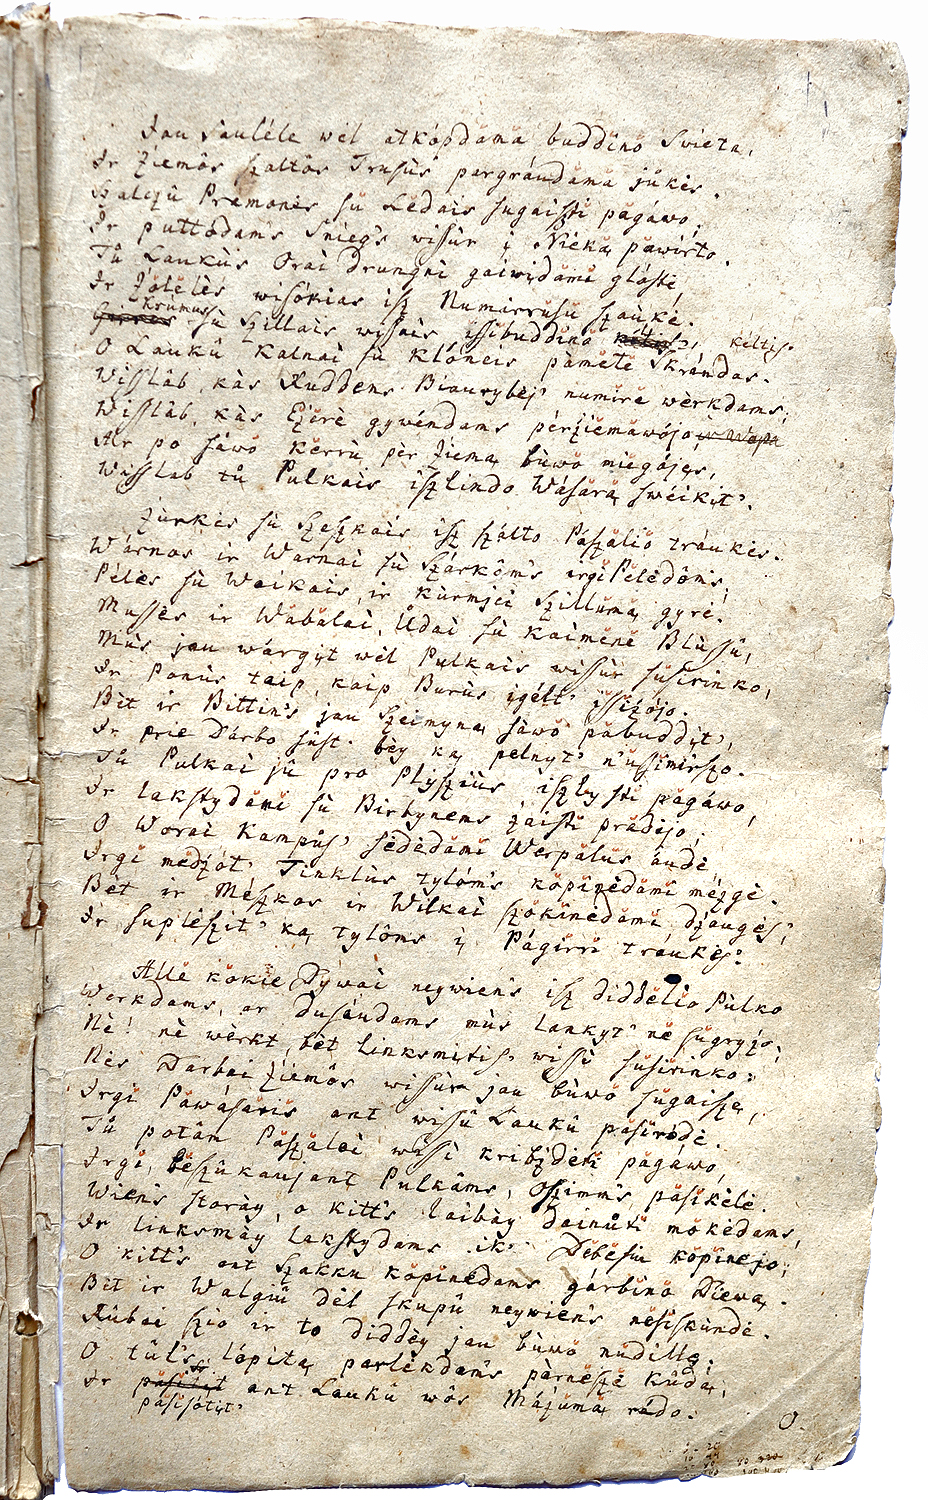 Jau Sauléle wėl atkópdama buddino Swieta,
Ir Źiemôs ßaltôs Trusùs pargráudama jůkės.
Szalczû Pramonės sù Ledais sugaißti pagáwo;
Ir puttódams Snieg's wissùr į Nieka pawirto.
Tů Laukùs Orai drungni gaiwįdami glóstė,
Ir Źolelès wisókias iß Numirrusû ßaukė.
Krúmus
Girres sù Szillais wissais issibuddino kéltis, kėltis.
O Laukû Kalnai sù Klóneis pametė Skrándas.
Wisslab, kàs Ruddens Biaurybėj' numirė wèrkdams;
Wisslab, kàs Eźerė gywéndams pérźiemawójo ir Wapa
Ar po sáwo Kerrù pèr Źiema bùwo miegójęs,
Wisslab tů Pulkais ißlindo Wásara sweikįt'.
Źurkės sù Szeßkais iß ßálto Paßalio tráukės.
Wárnos ir Warnai sù Szárkôms irgi Pelėdôms,
Pėlės sù Waikais, ir kùrmjei Szilluma gyrė.
Mussės ir Wabalai, Ůdai sù Kaimenė Blùssû,
Mùs jau wárgįt wėl Pulkais wissùr susirinko,
Ir Ponùs taip, kaip Burùs įgélt' issiźójo.
Bèt ir Bittin's jau Szeimyna sàwo pabuddįt',
Ir prie Dárbo sůst' bey ka pelnyt' n'ussimirßo.
Tů Pulkai jû pro Plyßiùs ißlysti pagáwo,
Ir lakstydami sù Birbynėms źaisti pradėjo;
O Worai Kampůs' sėdėdami Werpalus áudė,
Irgi medźót' Tinklùs tylóms kopinėdami mézgė.
Bèt ir Mėßkos ir Wilkai ßokinėdami dźaugės',
Ir suplėßit' ka tylôms į Págirri tráukės'.
Allė kokie Dywai neywien's iß diddėlio Pùlko
Werkdams, ar dusáudams mùs lankyt' nė sugryźo;
Nè! nė wèrkt, bėt linksmįtis' wissi susirinko:
Nės Darbai Źiemôs wissùr jau bùwo sugaißę,
Irgi Pawásaris ant wissû Laukû pasiródė.
Tů potám Paßalei wissi kribźdėti pagáwo,
Irgi, bėßûkaujant Pulkâms, Oßimm's pasikėlė.
Wien's storay, o kitt's laibay dainůti mokėdams,
Ir linksmay lakstydams ik' Debesiu kopinėjo;
O kitt's ant Szakku kopinėdams gárbino Diewa.
Bèt ir Walgiû dėl skupû neywien's nesiskùndė.
Rùbai ßio ir to diddėy jau bùwo nudillę;
O tůl's lópįta parlėkdam's parneßė kůda,
Ir pasisótįt' ant Laukû wôs Máźuma rádo.
pasisótįt'
O.